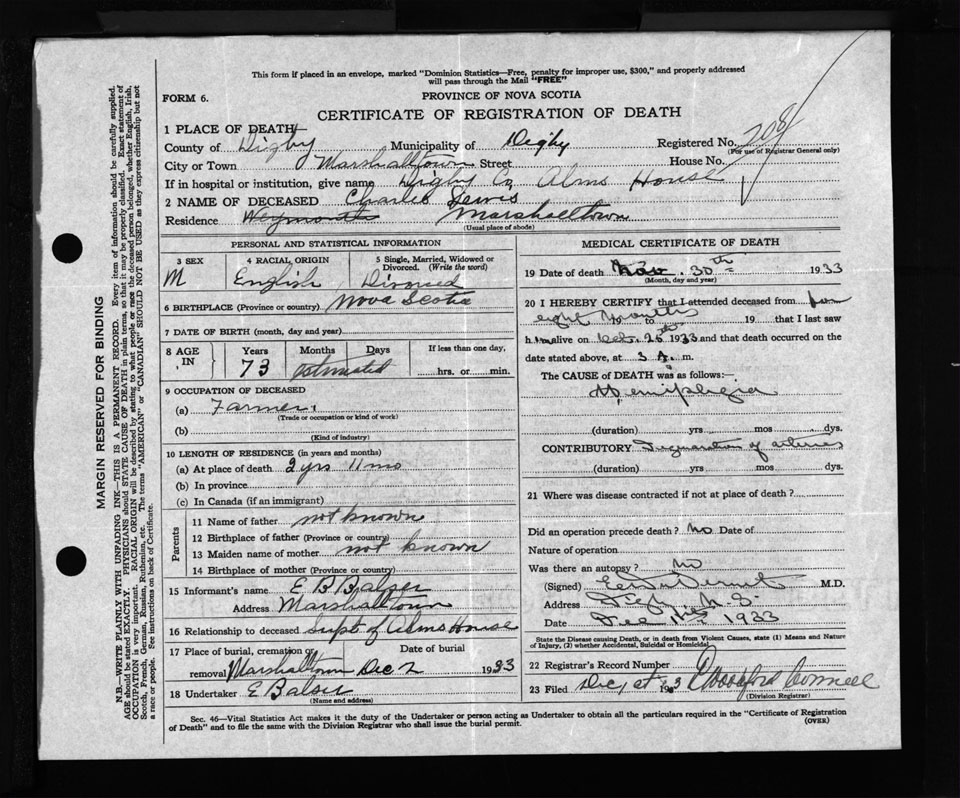 This form if placed in an envelope, marked "Dominion Statistics—Free, penalty for improper use, $300," and properly addressed
will pass through the Mail "FREE"
FORM 6.
PROVINCE OF NOVA SCOTIA
CERTIFICATE OF REGISTRATION OF DEATH
1 PLACE OF DEATH—
County of Digby Municipality of Digby Registered No. 708
(For use of Registrar General only)
City or Town Marshalltown Street House No.
If in hospital or institution, give name Digby Co Alms House
2 NAME OF DECEASED Charles Lewis
Residence Weymouth Marshalltown
(Usual place of abode)
PERSONAL AND STATISTICAL INFORMATION
3 SEX 4 RACIAL ORIGIN 5 Single, Married, Widowed or
Divorced. (Write the word)
M English Divorced
6 BIRTHPLACE (Province or country) Nova Scotia
7 DATE OF BIRTH (month, day and year)
8 AGE IN Years Months Days If less than one day,
73 estimated hrs. or min.
9 OCCUPATION OF DECEASED
(a) Farmer
(Trade or occupation or kind of work)
(b)
(Kind of industry)
10 LENGTH OF RESIDENCE (in years and months)
(a) At place of death 2 yrs 11 mo
(b) In province
(c) In Canada (if an immigrant)
Parents
11 Name of father not known
12 Birthplace of father (Province or country)
13 Maiden name of mother not known
14 Birthplace of mother (Province or country)
15 Informant's name E B Balser
Address Marshalltown
16 Relationship to deceased Supt of Alms House
17 Place of burial, cremation or Date of burial
removal Marshalltown Dec 2 1933
18 Undertaker E Balser
(Name and address)
MEDICAL CERTIFICATE OF DEATH
19 Date of death Nov. 30th 1933
(Month, day and year)
20 I HEREBY CERTIFY that I attended deceased from for
eight months to 19 that I last saw
him alive on 26th 1933 and that death occurred on the
date stated above, at 3 A. m.
The CAUSE of DEATH was as follows:—
Hemiplegia
(duration) yrs mos dys.
CONTRIBUTORY of arteries
(duration) yrs mos dys.
21 Where was disease contracted if not at place of death?
Did an operation precede death? No Date of
Nature of operation
Was there an autopsy? No
(Signed) M.D.
Address N.S.
Date Dec 1st 1933
State the Disease causing Death, or in death from Violent Causes, state (1) Means and Nature
of Injury, (2) whether Accidental, Suicidal or Homicidal.
22 Registrar's Record Number
23 Filed Dec 1st 1933
(Division Registrar)
Sec. 46—Vital Statistics Act makes it the duty of the Undertaker or person acting as Undertaker to obtain all the particulars required in the "Certificate of Registration
of Death" and to file the same with the Division Registrar who shall issue the burial permit.
(OVER)
MARGIN RESERVED FOR BINDING
N.B.—WRITE PLAINLY WITH UNFADING INK—THIS IS A PERMANENT RECORD. Every item of information should be carefully supplied.
AGE should be stated EXACTLY. PHYSICIANS should STATE CAUSE OF DEATH in plain terms, so that it may be properly classified. Exact statement of
OCCUPATION is very important. RACIAL ORIGIN will be described by stating to what people or race the deceased person belonged, whether English, Irish,
Scotch, French, German, Russian, Ruthenian, etc. The terms "AMERICAN" or "CANADIAN" SHOULD NOT BE USED as they express citizenship but not
a race or people. See instructions on back of Certificate.